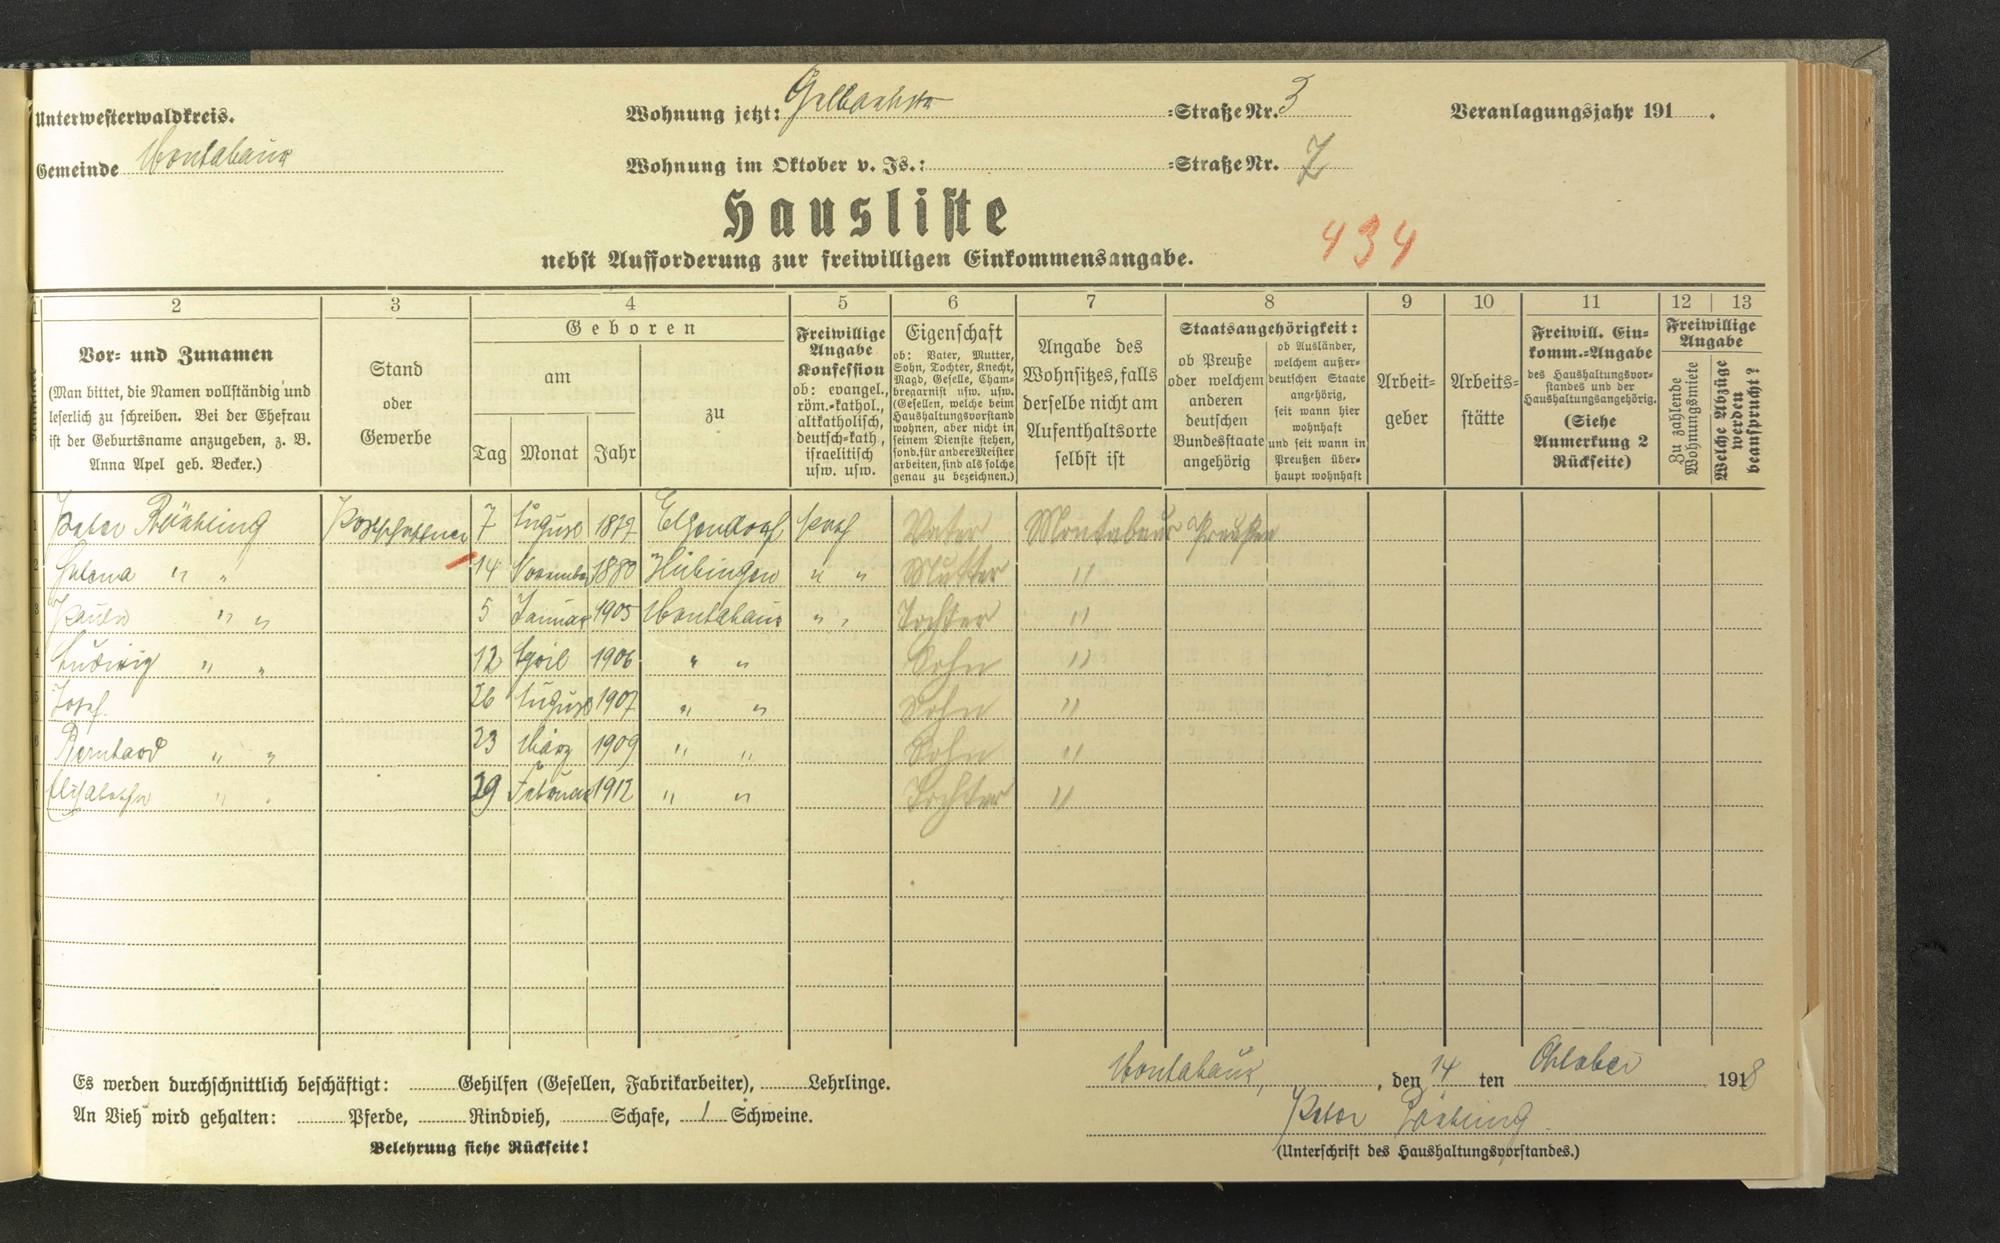 Unterwesterwaldkreis.
Wohnung jetzt: Gelbachstr =Straße Nr. 3
Veranlagungsjahr 191 .
Gemeinde Montabaur
Wohnung im Oktober v. Js.: =Straße Nr. 7
Hausliste
434
nebst Aufforderung zur freiwilligen Einkommensangabe.
1 2 3 4 5 6 7 8 9 10 11 12 13
Vor- und Zunamen
(Man bittet, die Namen vollständig und
leserlich zu schreiben. Bei der Ehefrau
ist der Geburtsname anzugeben, z. B.
Anna Apel geb. Becker.)
Stand
oder
Gewerbe
Geboren
am
Tag Monat Jahr
zu
Freiwillige
Angabe
Konfession
ob: evangel.,
röm.-kathol.,
altkatholisch,
deutsch-kath,
israelitisch
usw. usw.
Eigenschaft
ob: Vater, Mutter,
Sohn, Tochter, Knecht,
Magd, Geselle, Cham-
bregarnist usw. usw.
(Gesellen, welche beim
Haushaltungsvorstand
wohnen, aber nicht in
seinem Dienste stehen,
sond. für andere Meister
arbeiten, sind als solche
genau zu bezeichnen.)
Angabe des
Wohnsitzes, falls
derselbe nicht am
Aufenthaltsorte
selbst ist
Staatsangehörigkeit:
ob Preuße
oder welchem
anderen
deutschen
Bundesstaate
angehörig
ob Ausländer,
welchem außer-
deutschen Staate
angehörig,
seit wann hier
wohnhaft
und seit wann in
Preußen über-
haupt wohnhaft
Arbeit-
geber
Arbeits-
stätte
Freiwill. Ein-
komm.-Angabe
des Haushaltungsvor-
standes und der
Haushaltungsangehörig.
(Siehe
Anmerkung 2
Rückseite)
Freiwillige
Angabe
Zu zahlende
Wohnungsmiete
Welche Abzüge
werden
beansprucht?
1 Peter Postschaffner 7 August 1879 Elgendorf kath Vater Montabaur Preußen
2 Helena " " 14 November 1880 Hübingen " " Mutter "
3 Paula " " 5 Januar 1905 Montabaur " " Tochter "
4 Ludwig " " 12 April 1906 " " Sohn "
5 Josef 26 August 1907 " " Sohn "
6 Bernhard " " 23 März 1909 " " Sohn "
7 Elisabetha " " 29 Februar 1912 " " Tochter "
Es werden durchschnittlich beschäftigt: Gehilfen (Gesellen, Fabrikarbeiter), Lehrlinge.
Montabaur, , den 14 ten Oktober 1918
An Vieh wird gehalten: Pferde, Rindvieh, Schafe, 1 Schweine.
Peter
Belehrung siehe Rückseite!
(Unterschrift des Haushaltungsvorstandes.)